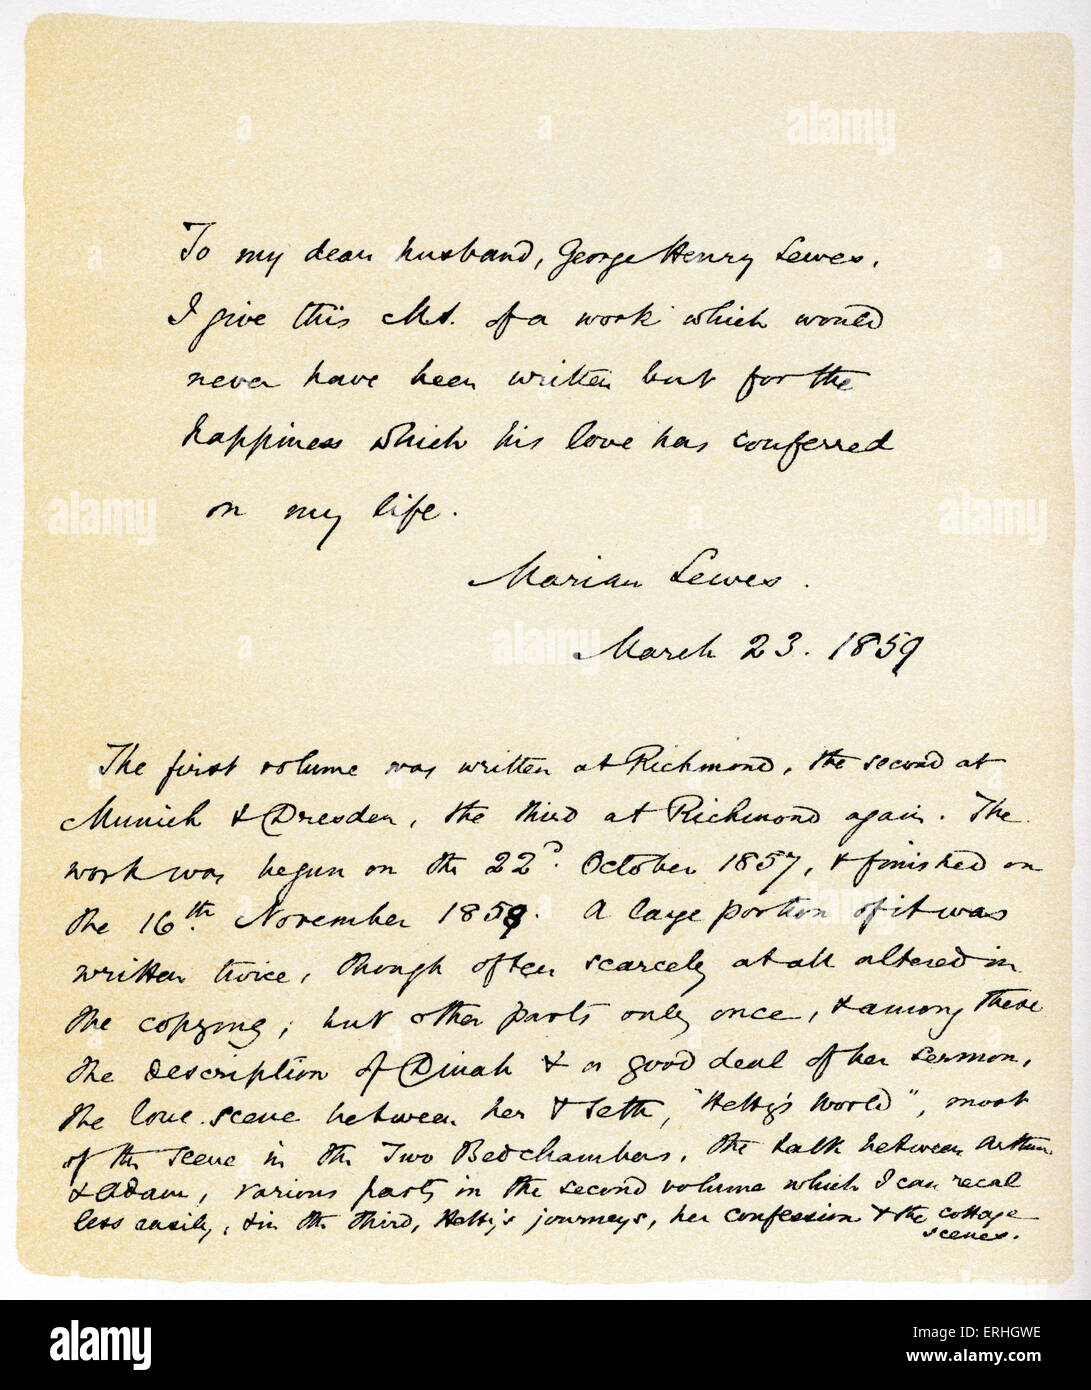 To my dear husband, George Henry Lewes,
I give this M.S. of a work which would
never have been written but for the
happiness which his love has conferred
on my life.
Marian Lewes.
March 23. 1859
The first volume was written at Richmond, the second at
Munich & Dresden, the third at Richmond again. The
work was begun on the 22d. October 1857, & finished on
the 16th. November 1858. A large portion of it was
written twice, though often scarcely at all altered in
the copying; but other parts only once, & among these
the description of Dinah & a good deal of her sermon,
the love scene between her & Seth, "Hetty's World", most
of the scene in the Two Bedchambers, the talk between Arthur
& Adam, various parts in the second volume which I can recal
less easily, & in the third, Hetty's journeys, her confession & the cottage
scenes.
alamy
Image ID: ERHGWE
www.alamy.com